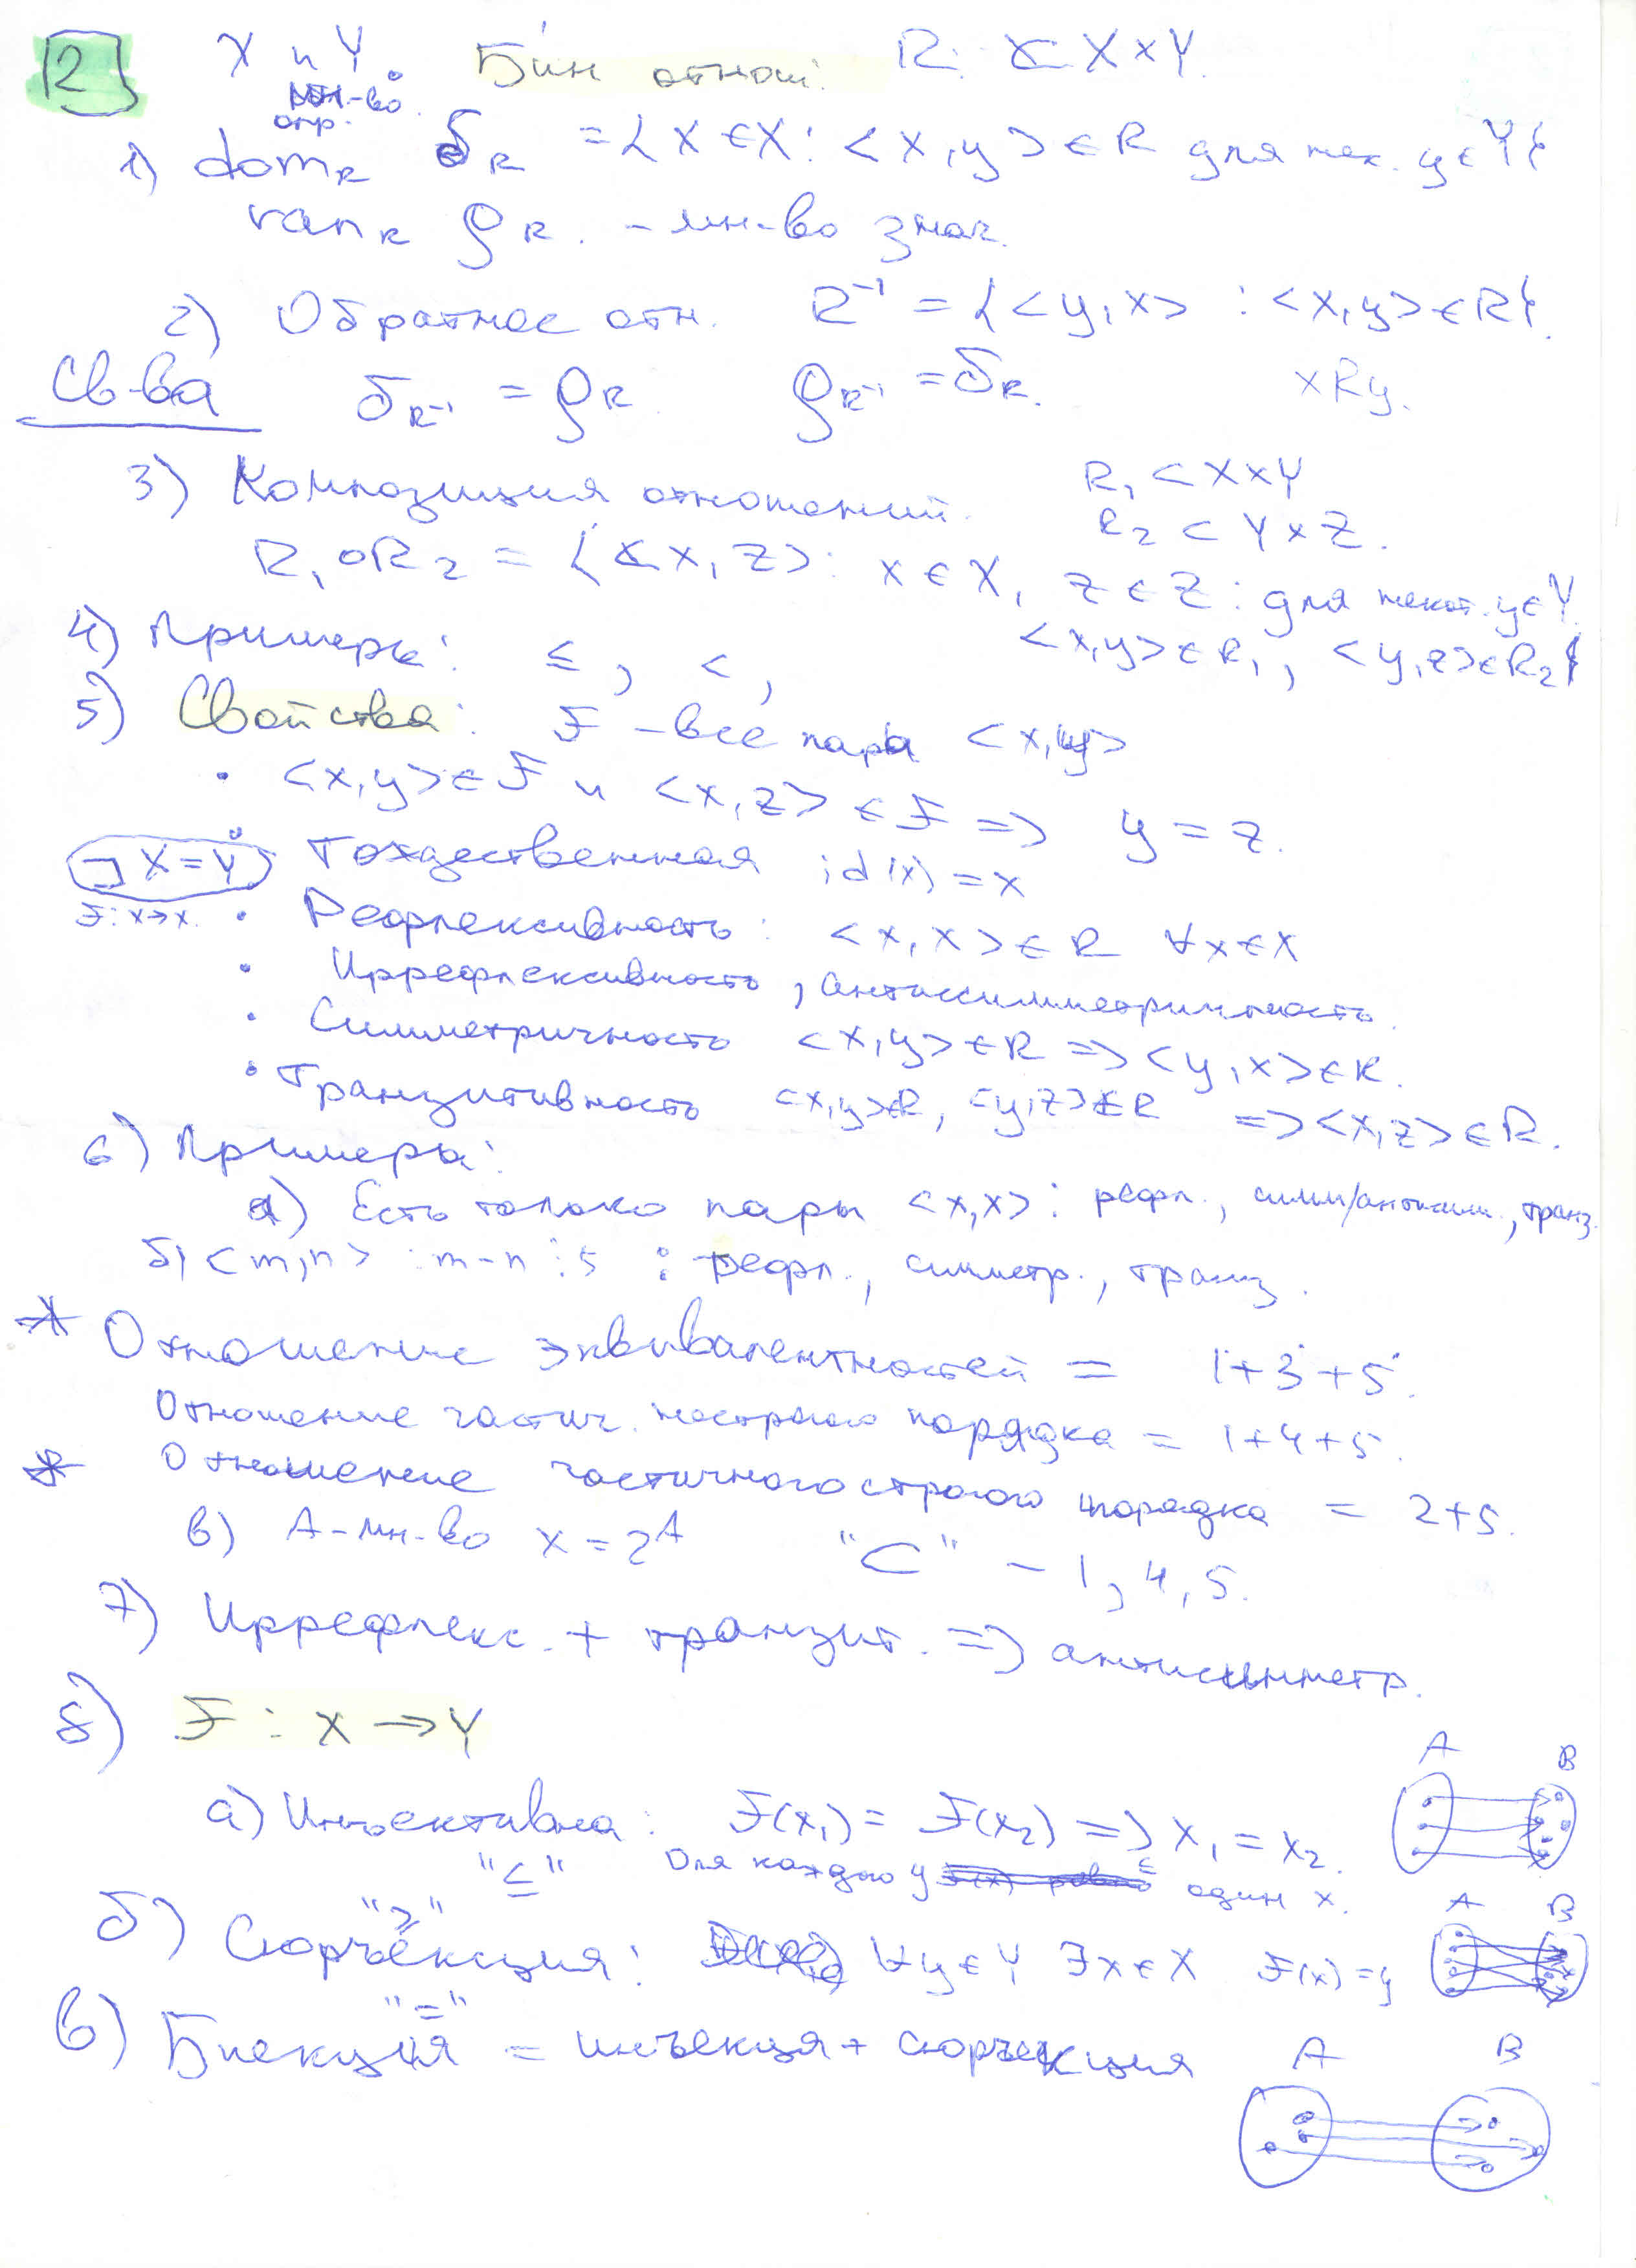 2 X и Y. Бин отнош. R: ⊂ X×Y.
мн-во опр.
1) dom_R δ_R = {x∈X: <x,y>∈R для нек. y∈Y}
ran_R ρ_R. - мн-во знач.
2) Обратное отн. R⁻¹ = {<y,x> : <x,y>∈R}.
Св-ва δ_R⁻¹ = ρ_R ρ_R⁻¹ = δ_R. xRy.
3) Композиция отношений. R₁ ⊂ X×Y
R₂ ⊂ Y×Z.
R₁∘R₂ = {<x,z>: x∈X, z∈Z: для некот. y∈Y
<x,y>∈R₁, <y,z>∈R₂}
4) Примеры: ≤, <,
5) Свойства: F - все пары <x,y>
• <x,y>∈F и <x,z>∈F => y=z.
⅃ X=Y Тождественная id(x)=x
F: x→x.
• Рефлексивность: <x,x>∈R ∀x∈X
• Иррефлексивность, антиссимметричность.
• Симметричность <x,y>∈R => <y,x>∈R.
• Транзитивность <x,y>∈R, <y,z>∈R => <x,z>∈R.
6) Примеры:
а) Есть только пары <x,x>: рефл., симм/антисим., транз.
б) <m,n> : m-n ⋮ 5 : рефл., симметр., транз.
* Отношение эквивалентностей = 1+3+5.
Отношение частич. нестрогого порядка = 1+4+5.
* Отношение частичного строгого порядка = 2+5.
в) A-мн-во x=2^A "⊂" - 1, 4, 5.
7) Иррефлекс. + транзит. => антисимметр.
8) F: X→Y
A B
а) Инъективна: F(x₁) = F(x₂) => x₁ = x₂.
"≤" Для каждого y ≤ один x.
"≥" A B
б) Сюръекция: ∀y∈Y ∃x∈X F(x)=y
"="
в) Биекция = инъекция + сюръекция
A B